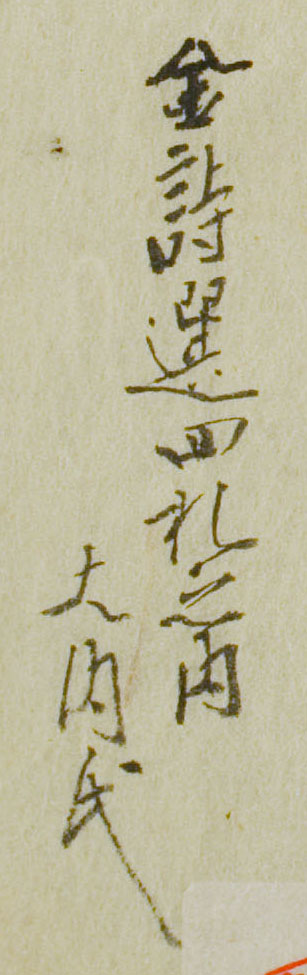 金詩選四札之内
大内氏